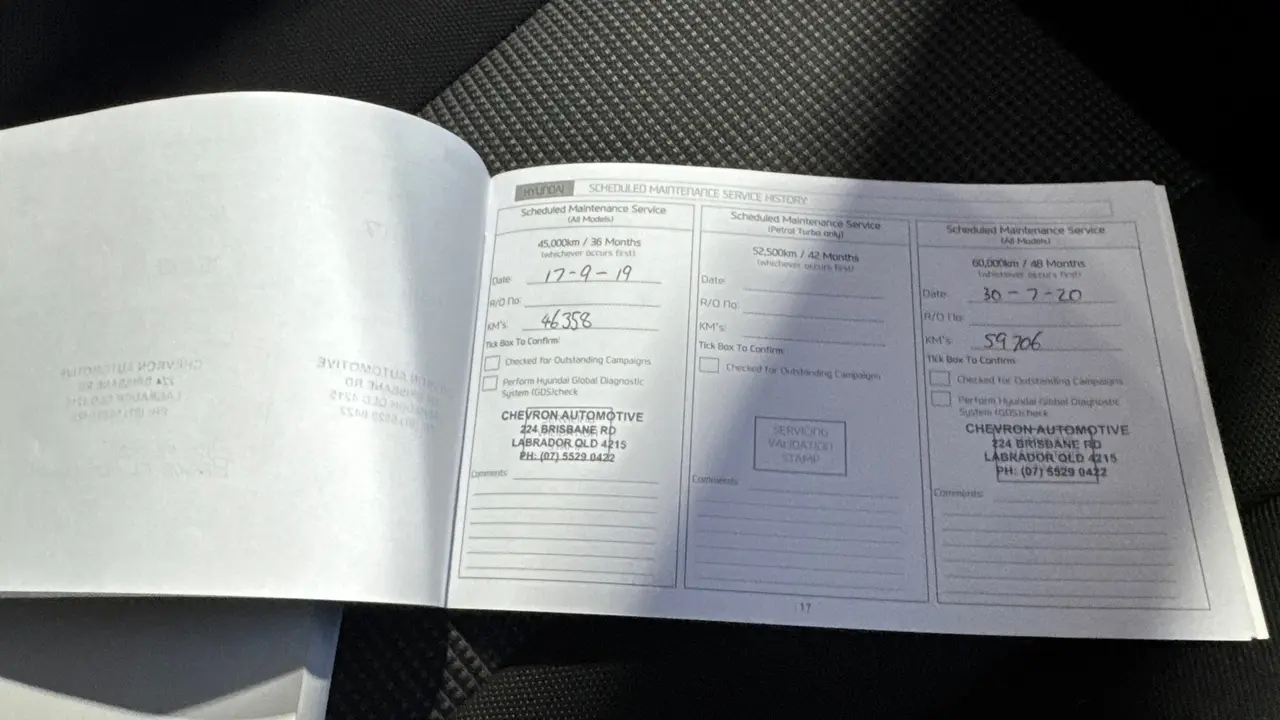 HYUNDAI SCHEDULED MAINTENANCE SERVICE HISTORY
Scheduled Maintenance Service
(All Models)
45,000km / 36 Months
(whichever occurs first)
Date: 17-9-19
R/O No:
KM's: 46358
Tick Box To Confirm
Checked for Outstanding Campaigns
Perform Hyundai Global Diagnostic
System (GDS)check
CHEVRON AUTOMOTIVE
224 BRISBANE RD
LABRADOR QLD 4215
PH: (07) 5529 0422
Comments:
Scheduled Maintenance Service
(Petrol Turbo only)
52,500km / 42 Months
(whichever occurs first)
Date:
R/O No:
KM's:
Tick Box To Confirm
Checked for Outstanding Campaigns
SERVICING
VALIDATION
STAMP
Comments:
Scheduled Maintenance Service
(All Models)
60,000km / 48 Months
(whichever occurs first)
Date: 30-7-20
R/O No:
KM's: 59706
Tick Box To Confirm
Checked for Outstanding Campaigns
Perform Hyundai Global Diagnostic
System (GDS)check
CHEVRON AUTOMOTIVE
224 BRISBANE RD
LABRADOR QLD 4215
PH: (07) 5529 0422
Comments:
17